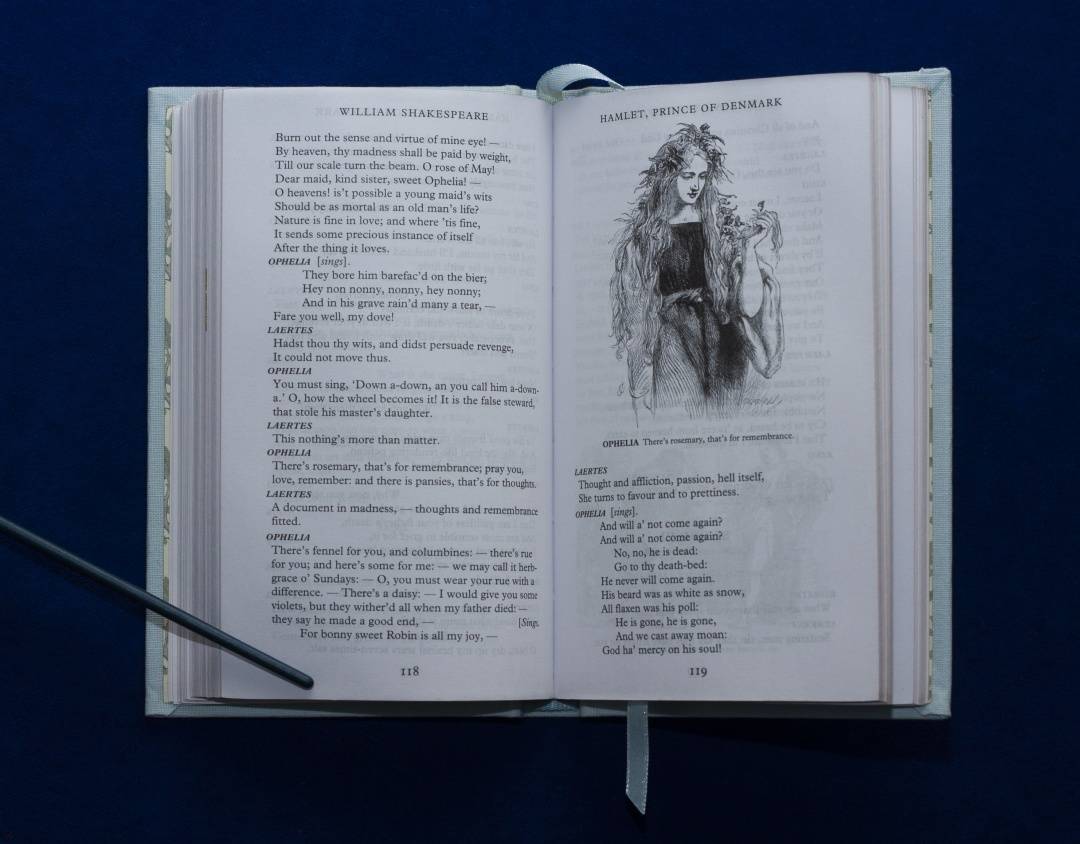 WILLIAM SHAKESPEARE
Burn out the sense and virtue of mine eye! —
By heaven, thy madness shall be paid by weight,
Till our scale turn the beam. O rose of May!
Dear maid, kind sister, sweet Ophelia! —
O heavens! is't possible a young maid's wits
Should be as mortal as an old man's life?
Nature is fine in love; and where 'tis fine,
It sends some precious instance of itself
After the thing it loves.
OPHELIA [sings].
They bore him barefac'd on the bier;
Hey non nonny, nonny, hey nonny;
And in his grave rain'd many a tear, —
Fare you well, my dove!
LAERTES
Hadst thou thy wits, and didst persuade revenge,
It could not move thus.
OPHELIA
You must sing, 'Down a-down, an you call him a-down-
a.' O, how the wheel becomes it! It is the false steward,
that stole his master's daughter.
LAERTES
This nothing's more than matter.
OPHELIA
There's rosemary, that's for remembrance; pray you,
love, remember: and there is pansies, that's for thoughts.
LAERTES
A document in madness, — thoughts and remembrance
fitted.
OPHELIA
There's fennel for you, and columbines: — there's rue
for you; and here's some for me: — we may call it herb-
grace o' Sundays: — O, you must wear your rue with a
difference. — There's a daisy: — I would give you some
violets, but they wither'd all when my father died: —
they say he made a good end, — [Sings.
For bonny sweet Robin is all my joy, —
118
HAMLET, PRINCE OF DENMARK
OPHELIA There's rosemary, that's for remembrance.
LAERTES
Thought and affliction, passion, hell itself,
She turns to favour and to prettiness.
OPHELIA [sings].
And will a' not come again?
And will a' not come again?
No, no, he is dead:
Go to thy death-bed:
He never will come again.
His beard was as white as snow,
All flaxen was his poll:
He is gone, he is gone,
And we cast away moan:
God ha' mercy on his soul!
119